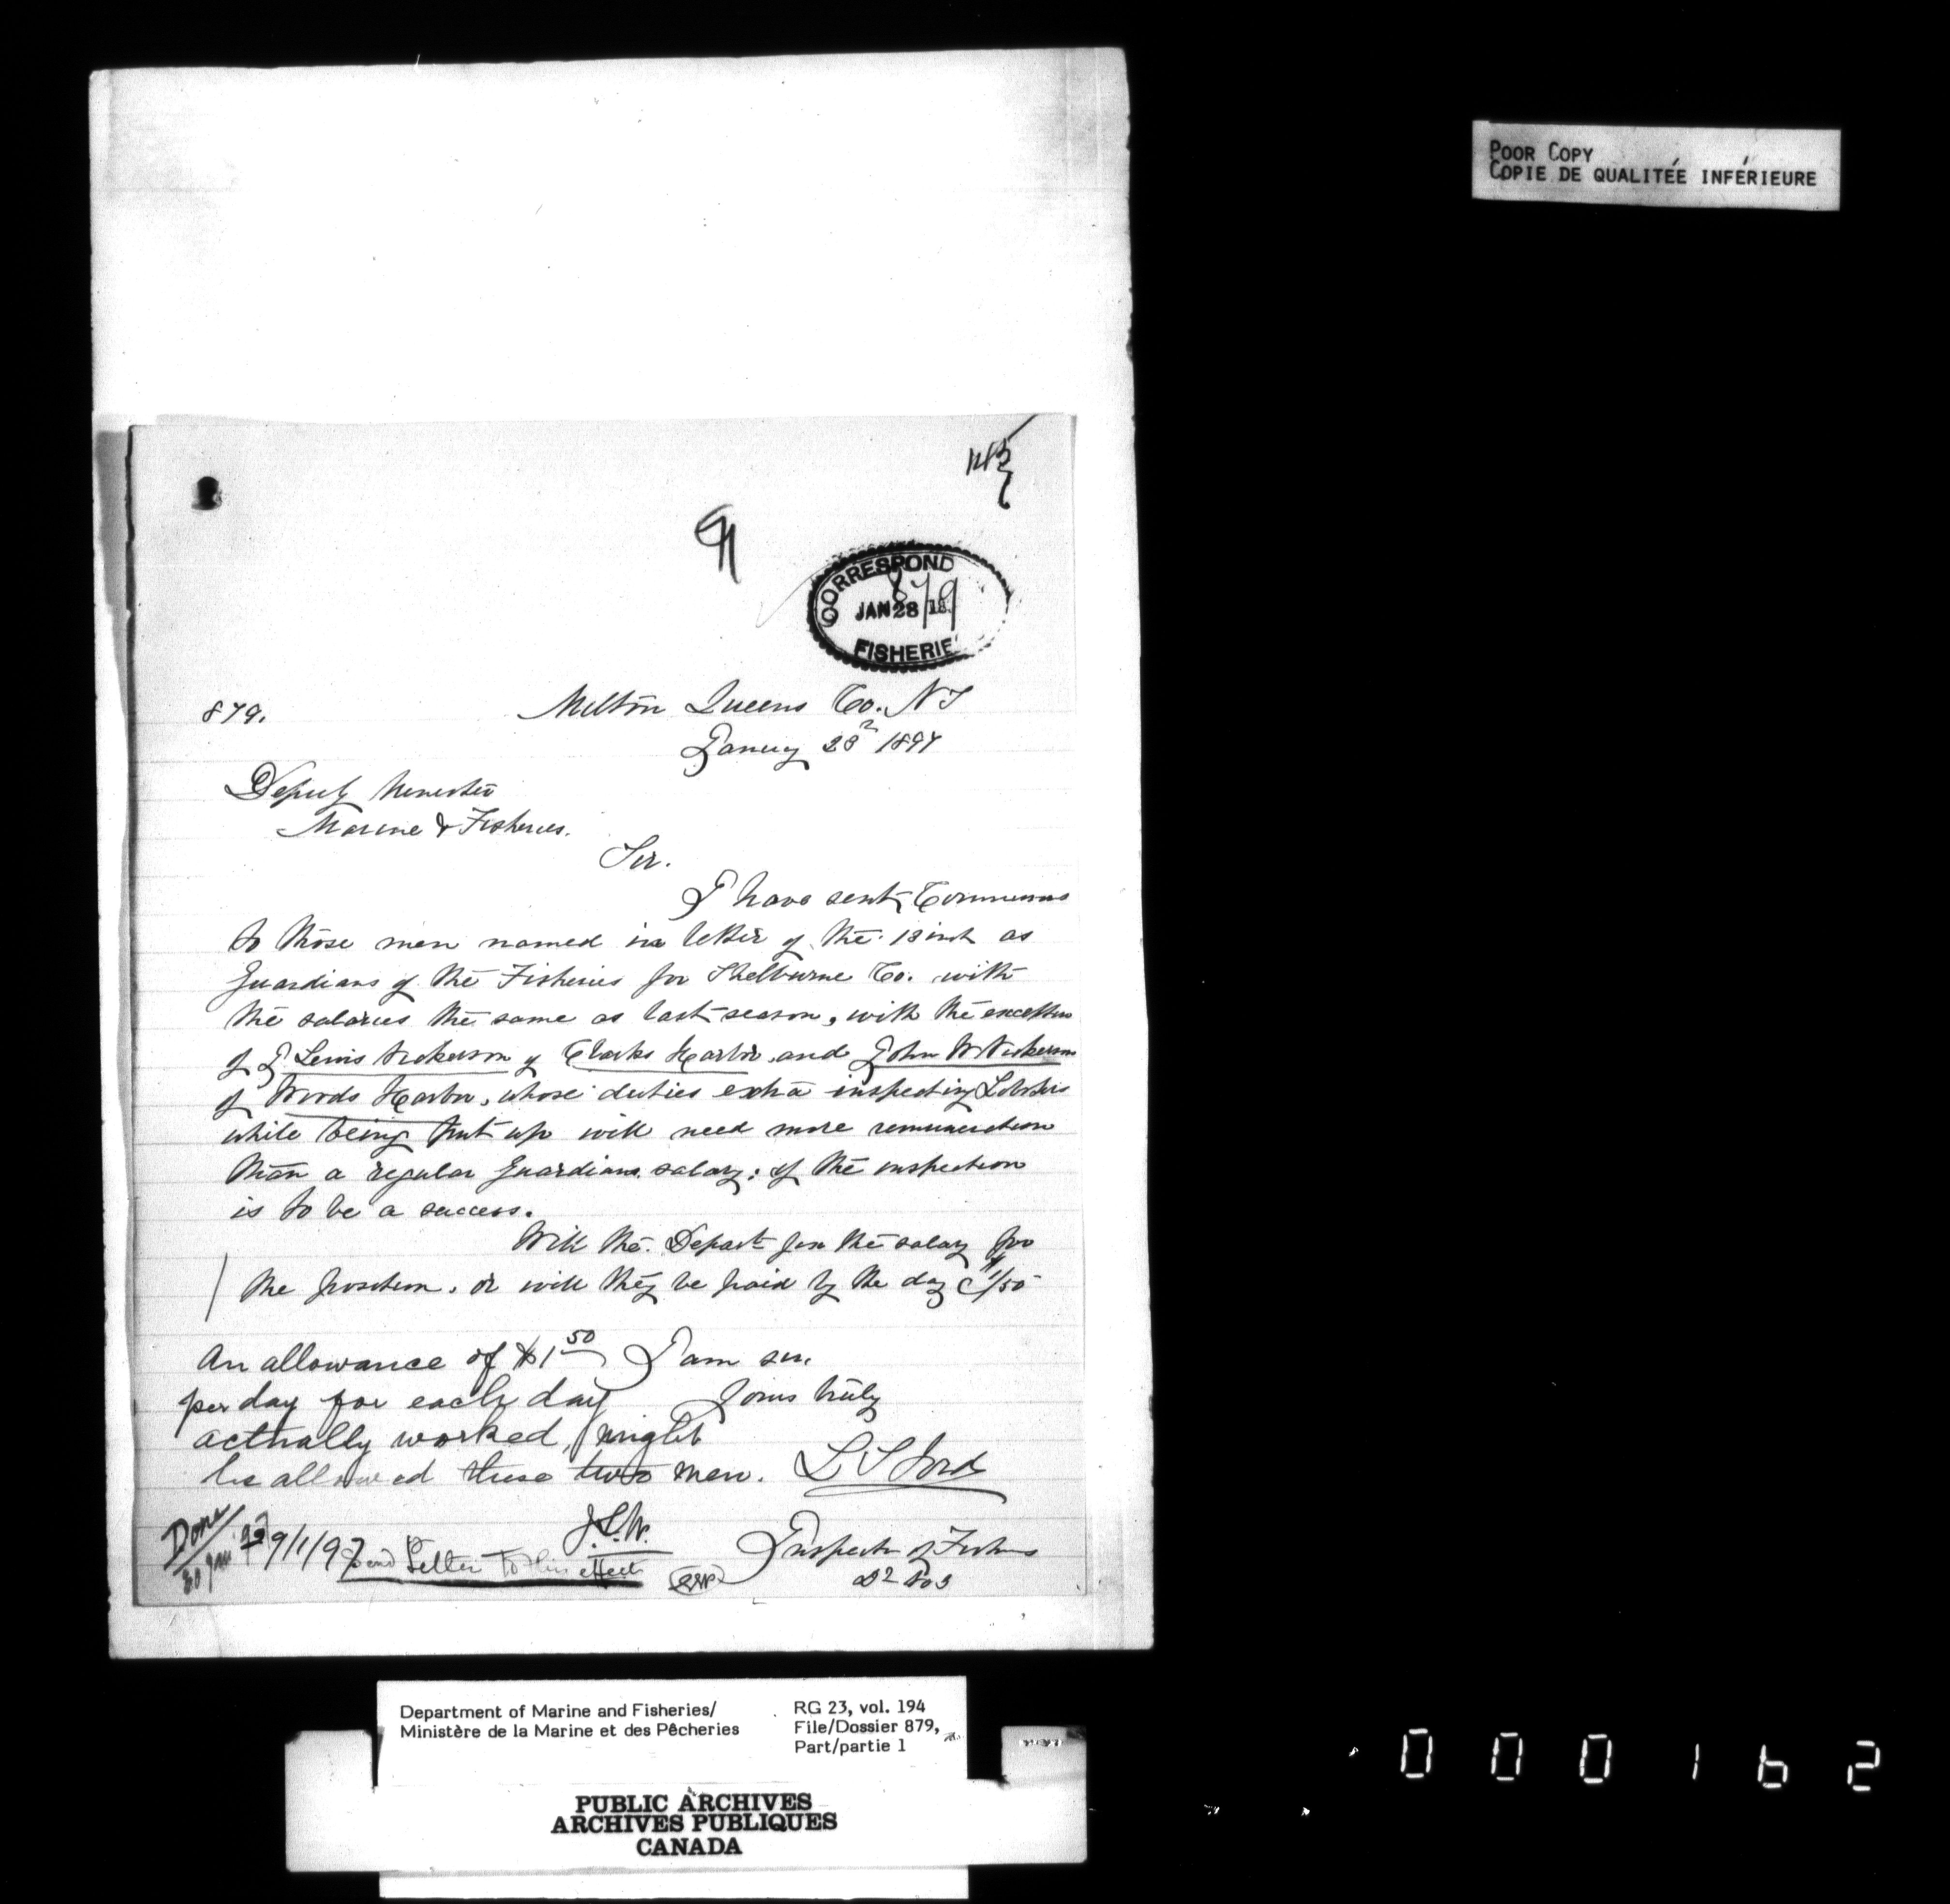 POOR COPY
COPIE DE QUALITÉE INFÉRIEURE
91
CORRESPOND
879
JAN 28 18
FISHERIE
879.
Milton Queens Co. N S
January 23 1897
Deputy Minister
Marine & Fisheries.
Sir.
I have sent
to those men named in letter of the 18 inst as
Guardians of the Fisheries for Shelburne Co. with
the salaries the same as last season, with the
of J Lewis Nickerson of Clarks Harbor, and John W Nickerson
of Woods Harbor, whose duties extra inspecting Lobsters
while being put up will need more remuneration
than a regular Guardians salary; if the inspection
is to be a success.
Will the Depart fix the salary for
the position, or will they be paid by the day
An allowance of $1 50 I am sir.
per day for each day Yours truly
actually worked, might
be allowed these two men. L S Ford
Done J.L.W.
29/1/97 Send Letter to this effect Inspector of Fisheries
Department of Marine and Fisheries/
Ministère de la Marine et des Pêcheries
RG 23, vol. 194
File/Dossier 879,
Part/partie 1
PUBLIC ARCHIVES
ARCHIVES PUBLIQUES
CANADA
000162